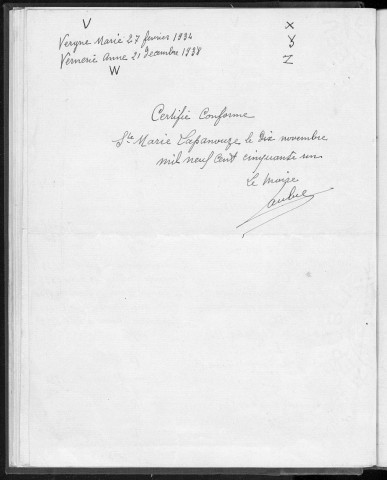 V
Vergne Marie 27 fevrier 1934
Vernerie Anne 21 decembre 1938
W
X
Y
Z
Certifié Conforme
Ste Marie Lapanouze le dix novembre
mil neuf cent cinquante un
Le Maire